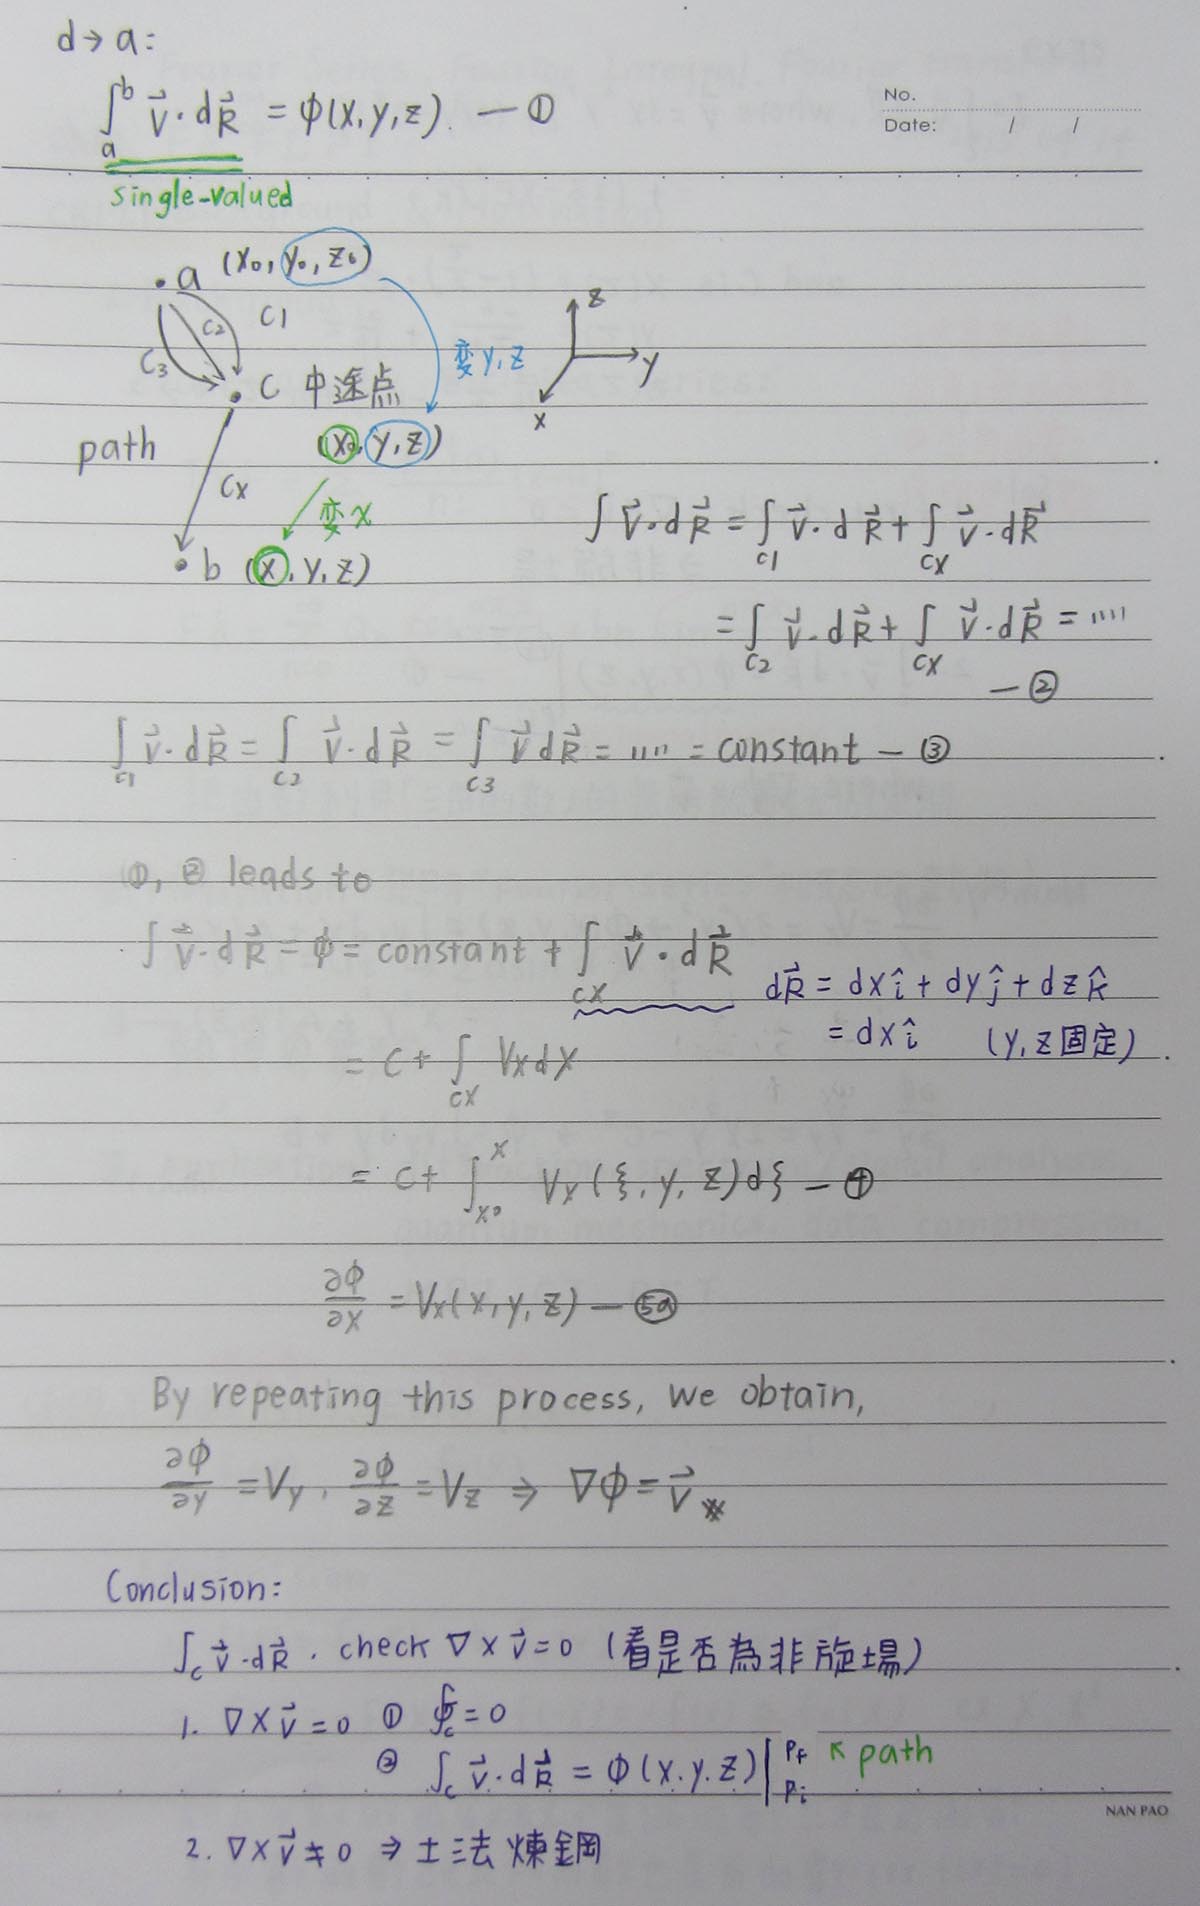 d→a:
∫_a^b V⃗·dR⃗ = φ(x,y,z). —①
No.
Date: / /
single-valued
a (x₀, y₀, z₀)
C1
C2
C3
变y,z
z
y
x
C 中途点
(x₀, y, z)
path
Cx
变x
b (x, y, z)
∫V⃗·dR⃗ = ∫_C1 V⃗·dR⃗ + ∫_Cx V⃗·dR⃗
= ∫_C2 V⃗·dR⃗ + ∫_Cx V⃗·dR⃗ = ....
—②
∫_C1 V⃗·dR⃗ = ∫_C2 V⃗·dR⃗ = ∫_C3 V⃗ dR⃗ = .... = constant —③
①, ② leads to
∫V⃗·dR⃗ = φ = constant + ∫_Cx V⃗·dR⃗
dR⃗ = dxî + dyĵ + dzk̂
= dxî (y,z固定)
= C + ∫_Cx Vx dx
= C + ∫_x₀^x Vx(ξ, y, z)dξ —④
∂φ/∂x = Vx(x, y, z) —⑤a
By repeating this process, we obtain,
∂φ/∂y = Vy, ∂φ/∂z = Vz ⇒ ∇φ = V⃗ ※
Conclusion:
∫_C V⃗·dR⃗. check ∇×V⃗=0 (看是否為非旋場)
1. ∇×V⃗=0 ① ∮_C=0
② ∫_C V⃗·dR⃗ = φ(x.y.z)|_Pi^Pf ↖ path
NAN PAO
2. ∇×V⃗≠0 ⇒ 土法煉鋼